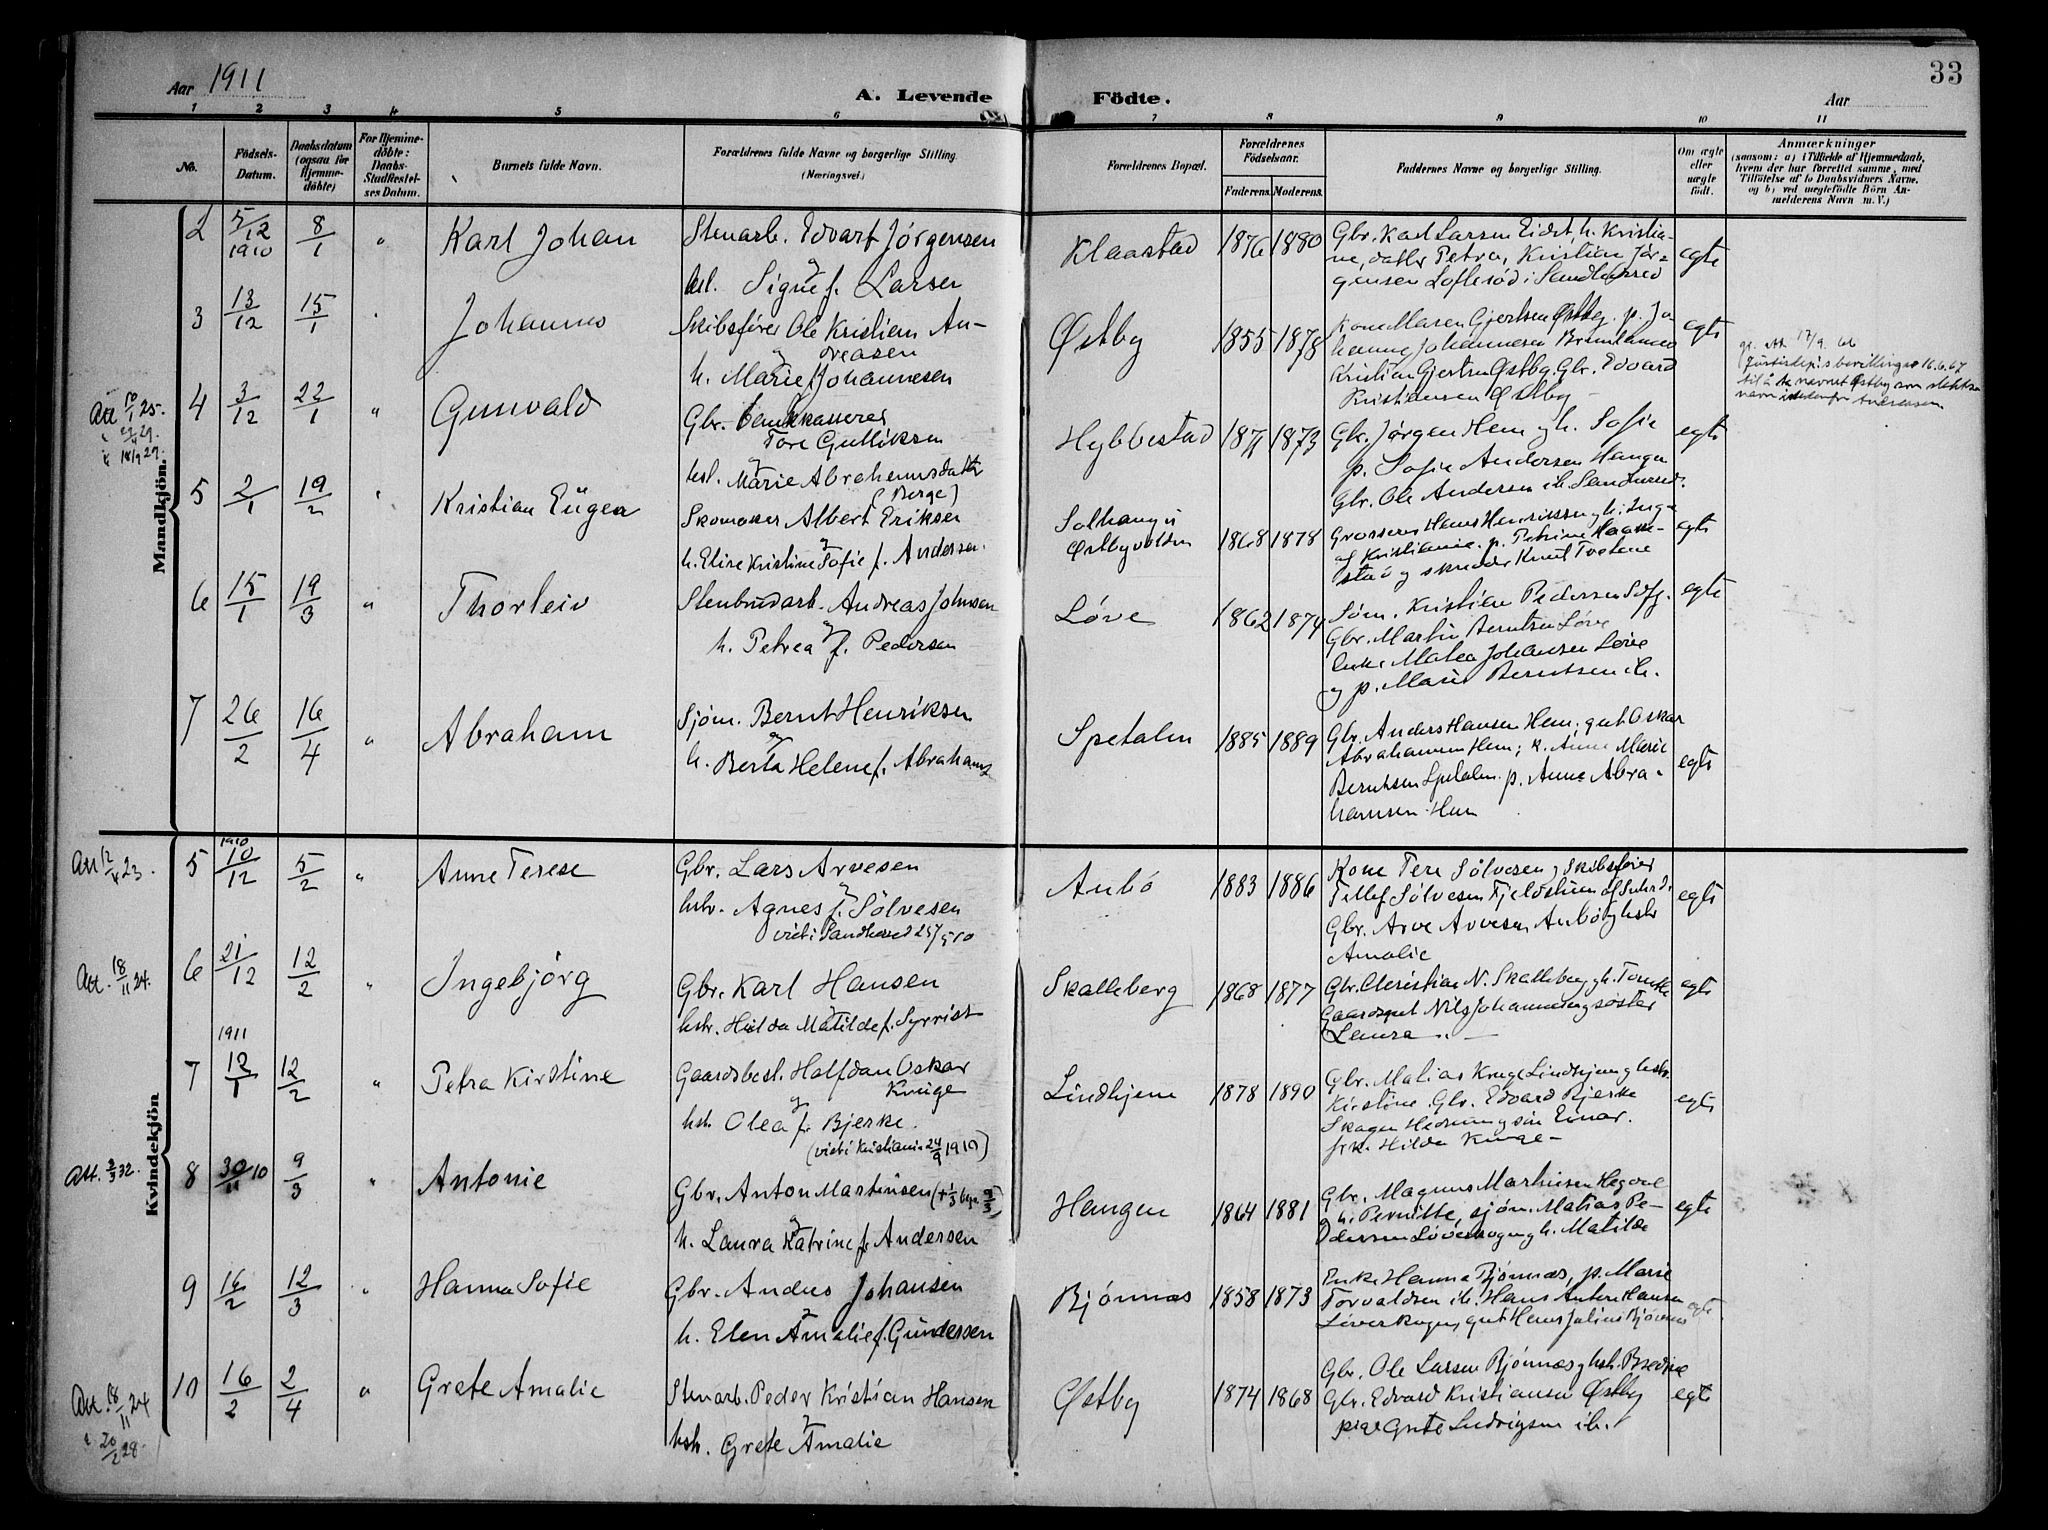 33
Aar 1911
A. Levende Födte.
Aar
1 2 3 4 5 6 7 8 9 10 11
No.
Födsels-
Datum.
Daabsdatum
(ogsaa for
Hjemme-
döbte)
For Hjemme-
döbte:
Daabs-
Stadfæstel-
ses Datum.
Barnets fulde Navn.
Forældrenes fulde Navne og borgerlige Stilling.
(Næringsvei.)
Forældrenes Bopæl.
Forældrenes
Födselsaar.
Faderens. Moderens.
Faddernes Navne og borgerlige Stilling.
Om ægte
eller
uægte
födt.
Anmærkninger
(saasom: a) i Tilfælde af Hjemmedaab,
hvem der har forrettet samme, med
Tilföielse af to Daabsvidners Navne,
og b) ved uægtefödte Börn An-
melderens Navn m. V.)
Mandkjön.
2 5/12 1910 8/1 " Karl Johan
Stenarb. Edvart Jörgensen
og
Signe f. Larsen
Klaastad 1876 1880
Gbr. Karl Larsen Eidet, h. Kristia-
ne, datter Petra, Kristian Jör-
gensen Loftesød i Sandeherred
egte
3 13/12 15/1 " Johannes
Skibsfører Ole Kristian An-
dreasen
og
h. Marie f. Johannesen
Østby 1855 1878
Kone Maren Gjertsen Østby. p. Jo
hanne Johannesen
Kristian Gjertsen Østby. Gbr. Edvard
Kristiansen Østby
egte
17/9 66
Justisdep.s bevilling 16.6.67
til å ta navnet Østby som slekts
navn istedenfor Andreasen
Att 10/1 25.
18/9 29.
4 3/12 22/1 " Gunvald
Gbr. bankkasserer
Tore Gulliksen
og
hsl. Marie Abrahamsdatter
(Berge)
Hybbestad 1871 1873
Gbr. Jørgen Hem og h. Sofie
p. Sofie Andersen Haugen
Gbr. Ole Andersen ib. Sandherred.
egte
5 2/1 19/2 " Kristian Eugen
Skomaker Albert Eriksen
og
h. Elise Kristine Sofie f. Andersen.
Solhaug i
Østbyvolden
1868 1878
Grosserer Hans Henriksen og h. Inga
af Kristiania. p. Petrine Haake-
stad og skrædder Knut Tvetene
egte
6 15/1 19/3 " Thorleiv
Stenbrudarb. Andreas Johnsen
og
h. Petrea f. Pedersen
Løve 1862 1874
Søm. Kristian Pedersen
Gbr. Martin Berntsen Løve
Enke Matea Johansen Løve
og p. Marie Berntsen ib.
egte
7 26/2 16/4 " Abraham
Sjøm. Bernt Henriksen
og
h. Berta Helene f. Abrahams
Spetalen 1885 1889
Gbr. Anders Hansen Hem; gut Oskar
Abrahamsen Hem; k. Anne Marie
Berntsen Spetalen. p. Anna Abra-
hamsen Hem
egte
Kvindekjön
Att 12/4 23.
5 1910 10/12 5/2 " Anne Terese
Gbr. Lars Arvesen
og
hstr. Agnes f. Sölvesen
viet i Sandherred 25/5 10
Aubö 1883 1886
Kone Tere Sölvesen og skibsfører
Tellef Sölvesen Fjeldstium af Sandhrd.
Gbr. Arve Arvesen Aubö og hstr
Amalie
egte
Att. 18/11 24.
6 21/12 12/2 " Ingebjörg
Gbr. Karl Hansen
og
hstr. Hilda Matilde f. Syrrist
Skalleberg 1868 1877
Gbr. Christian N. Skalleberg og h. Tomine
Gaardsgut Nils Johannesen og søster
Laura
egte
1911
7 12/1 12/2 " Petra Kirstine
Gaardsbest. Halfdan Oskar
Kruge
og
hstr. Olea f. Bjerke.
(viet i Kristiania 24/9 1910)
Lindhjem 1878 1890
Gbr. Matias Kruge Lindhjem og hstr.
Kirstine. Gbr. Edvard Bjerke
Skagen Hedrum og søn Einar.
frk. Hilda Kruge
egte
Att. 3/3 32.
8 30/11 10 9/3 " Antonie
Gbr. Anton Martinsen († 1/3 begr. 9/3)
og
h. Laura Katrine f. Andersen
Haugen 1864 1881
Gbr. Magnus Martinsen
h. Pernille, sjøm. Matias Pe-
dersen Løveskogen og h. Matilde
egte
9 16/2 12/3 " Hanna Sofie
Gbr. Anders Johansen
og
h. Elen Amalie f. Gundersen
Bjönnes 1858 1873
Enke Hanna Bjönnes, p. Marie
Torvaldsen ib. Hans Anton Hansen
Løverskogen, gut Hans Julius Bjönnes
egte
Att. 18/11 24
20/2 28.
10 16/2 2/4 " Grete Amalie
Stenarb. Peder Kristian Hansen
og
hstr. Grete Amalie
Østby 1874 1868
Gbr. Ole Larsen Bjönnes og hstr. Bredine
Gbr. Edvard Kristiansen Østby
pige Grete Ludvigsen ib.
egte